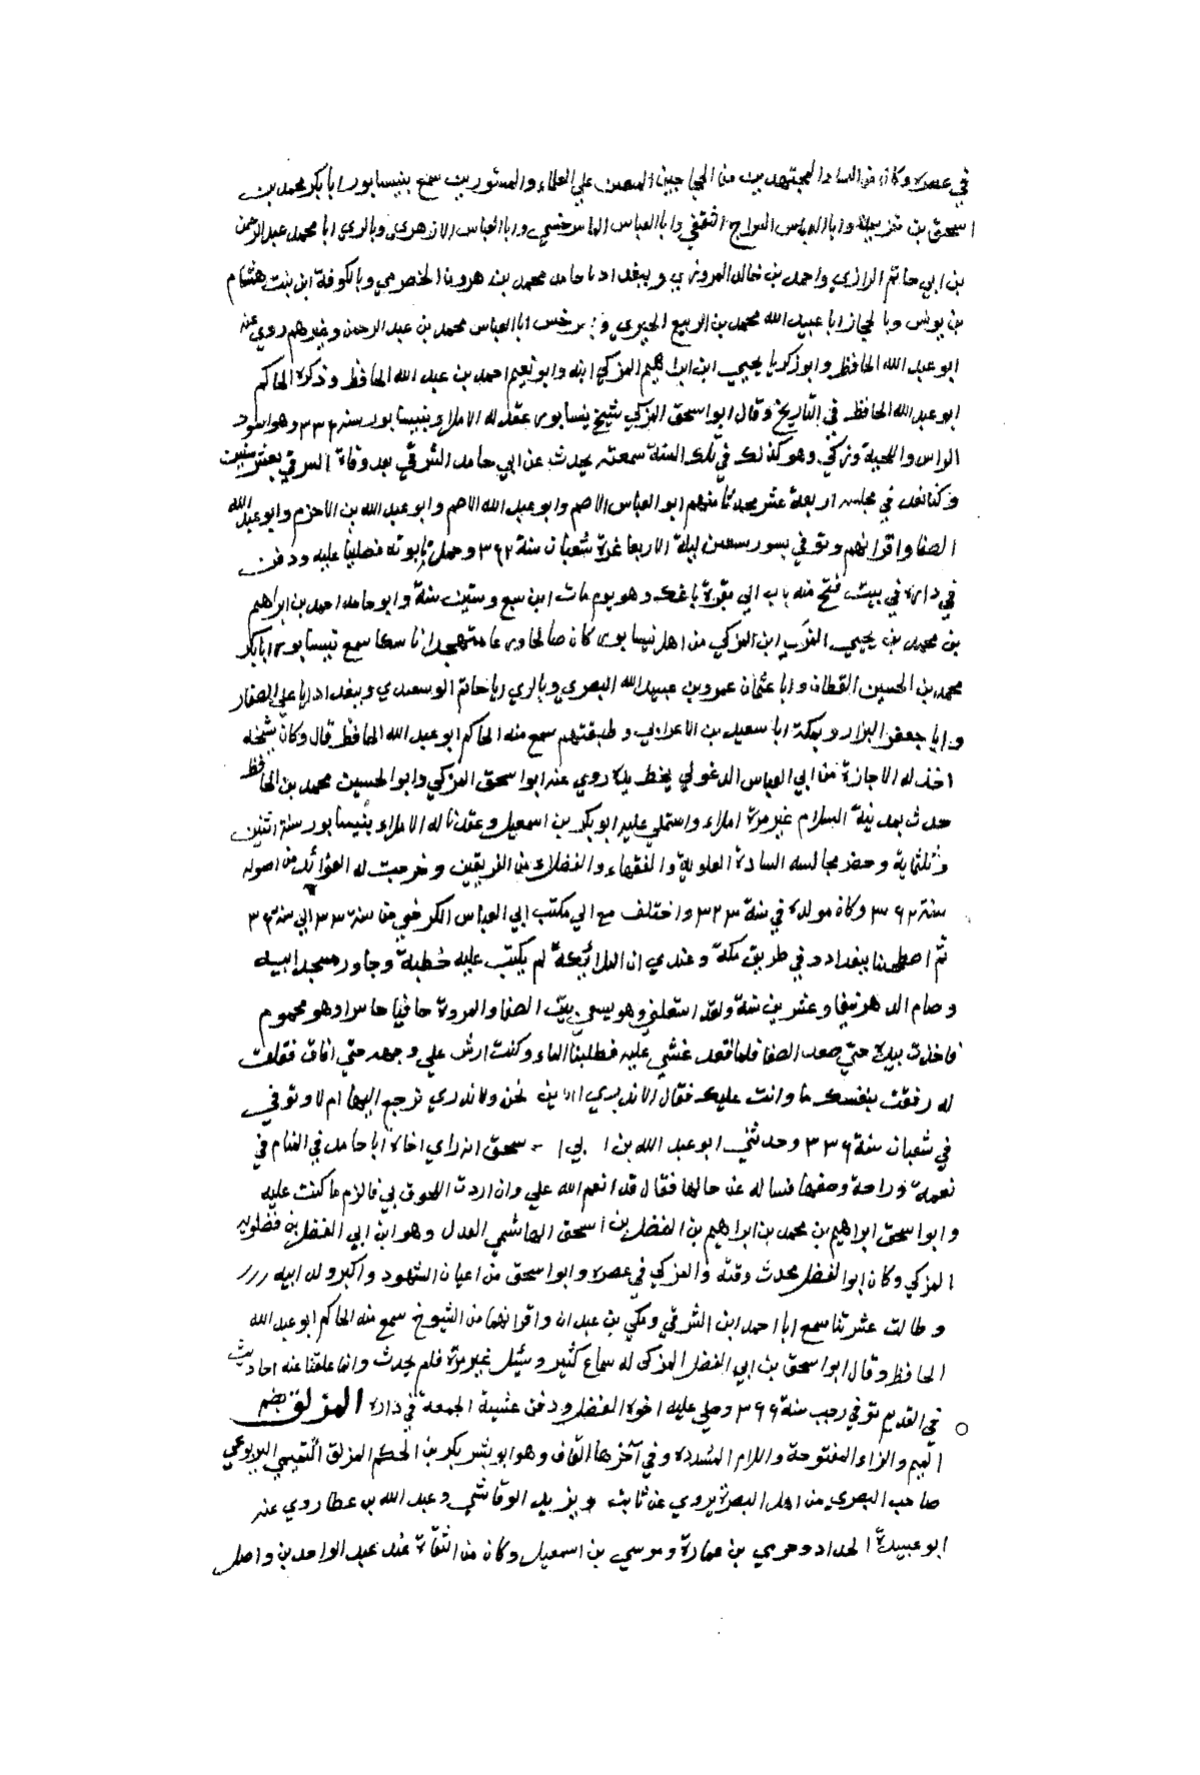 في عصره وكان من العباد المجتهدين من الحجاجين المنفقين علي العلماء والمستورين سمع بنيسابور ابا بكر محمد بن
اسحق بن خزيمة وابا العباس السراج الثقفي وابا العباس الماسرخسي وابا العباس الازهري وبالري ابا محمد عبد الرحمن
بن ابي حاتم الرازي واحمد بن خالد المروزي وببغداد ابا حامد محمد بن هرون الحضرمي وبالكوفة ابن بنت هشام
بن يونس وبالحجاز ابا عبيد الله محمد بن الربيع الجيزي وبسرخس ابا العباس محمد بن عبد الرحمن وغيرهم روي عنه
ابو عبد الله الحافظ وابو زكريا يحيي ابن ابراهيم المزكي ابنه وابو نعيم احمد بن عبد الله الحافظ وذكره الحاكم
ابو عبد الله الحافظ في التاريخ وقال ابو اسحق المزكي شيخ نيسابور عقد له الاملاء بنيسابور سنة ٣٣٦ وهو اسود
الراس واللحية وزكي وهو كذلك في تلك السنة سمعته يحدث عن ابي حامد الشرقي بعد وفاة الشرقي بعشر سنين
وكنا نعد في مجلسه اربعة عشر محدثا منهم ابو العباس الاصم وابو عبد الله الاصم وابو عبد الله بن الاخرم وابو عبد الله
الصفا واقرانهم وتوفي بسوسنقين ليلة الاربعا غرة شعبان سنة ٣٦٢ وحمل تابوته فصلينا عليه ودفن
في داره في بيت فتح منه باب الي مقبرة باغك وهو يوم مات ابن سبع وستين سنة وابو حامد احمد بن ابراهيم
بن محمد بن يحيي المزكي ابن المزكي من اهل نيسابور كان صالحا ورعا متهجدا سمع نيسابور ابا بكر
محمد بن الحسين القطان وابا عثمان عمرو بن عبيد الله البصري وبالري ابا حاتم الوسعدي وببغداد ابا علي الصفار
وابا جعفر البزار وبمكة ابا سعيد بن الاعرابي وطبقتهم سمع منه الحاكم ابو عبد الله الحافظ قال وكان شيخه
اخذ له الاجازة من ابي العباس الدغولي بخط يده روي عنه ابو اسحق المزكي وابو الحسين محمد بن الحافظ
حدث بمدينة السلام غير مرة املاء واستملي عليه ابو بكر بن اسمعيل وعقدنا له الاملاء بنيسابور سنة اثنين
وثلثماية وحضر مجالسه السادة العلوية والفقهاء والفضلاء من الفريقين وخرجت له الفوائد من اصوله
سنة ٣٦٢ وكان مولده في سنة ٣٢٣ واختلف مع الي مكتب ابي العباس الكرخي من سنة ٣٣ الي سنة ٣٦
ثم اصطحبنا ببغداد وفي طريق مكة وعندي ان الملائكة لم يكتب عليه خطية وجاور مسجد ابيه
وصام الدهر نيفا وعشرين سنة ولقد استعلني وهو يسعي بين الصفا والمروة حافيا حاسرا وهو محموم
فاخذت بيده حتي صعد الصفا فلما قعد غشي عليه فطلبنا الماء وكنت ارش علي وجهه حتي افاق فقلت
له رفقت بنفسك ما وانت عليك فقال الا تدري اين نحن ولا ندري نرجع اليها ام لا وتوفي
في شعبان سنة ٣٣٦ وحدثني ابو عبد الله بن ابي اسحق انه راي اخاه ابا حامد في المنام في
نعمة وراحة وصفها فساله عن حالها فقال قد انعم الله علي وان اردت اللحوق بي فالزم ما كنت عليه
وابو اسحق ابراهيم بن محمد بن ابراهيم بن الفضل بن اسحق الهاشمي العدل وهو ابن ابي الفضل بن فضلويه
المزكي وكان ابو الفضل محدث وقته والمزكي في عصره وابو اسحق من اعيان الشهود واكبر ولد ابيه
وطالت عشرتنا سمع ابا احمد ابن الشرقي ومكي بن عبدان واقرانهما من الشيوخ سمع منه الحاكم ابو عبد الله
الحافظ وقال ابو اسحق بن ابي الفضل المزكي له سماع كثير وسئيل غير مرة فلم يحدث وانما علقنا عنه احاديث
في القديم توفي رجب سنة ٣٦٦ وصلي عليه اخوه الفضل ودفن عشية الجمعة في داره المزلق بضم
الميم والزاء المفتوحة واللام المشدده وفي آخرها القاف وهو ابو بشر بكر بن الحكم المزلق التميمي اليربوعي
صاحب البصري من اهل البصرة يروي عن ثابت ويزيد الرقاشي وعبد الله بن عطا روي عنه
ابو عبيدة الحداد وحرمي بن عمارة وموسي بن اسمعيل وكان من الثقاة عند عبد الواحد بن واصل